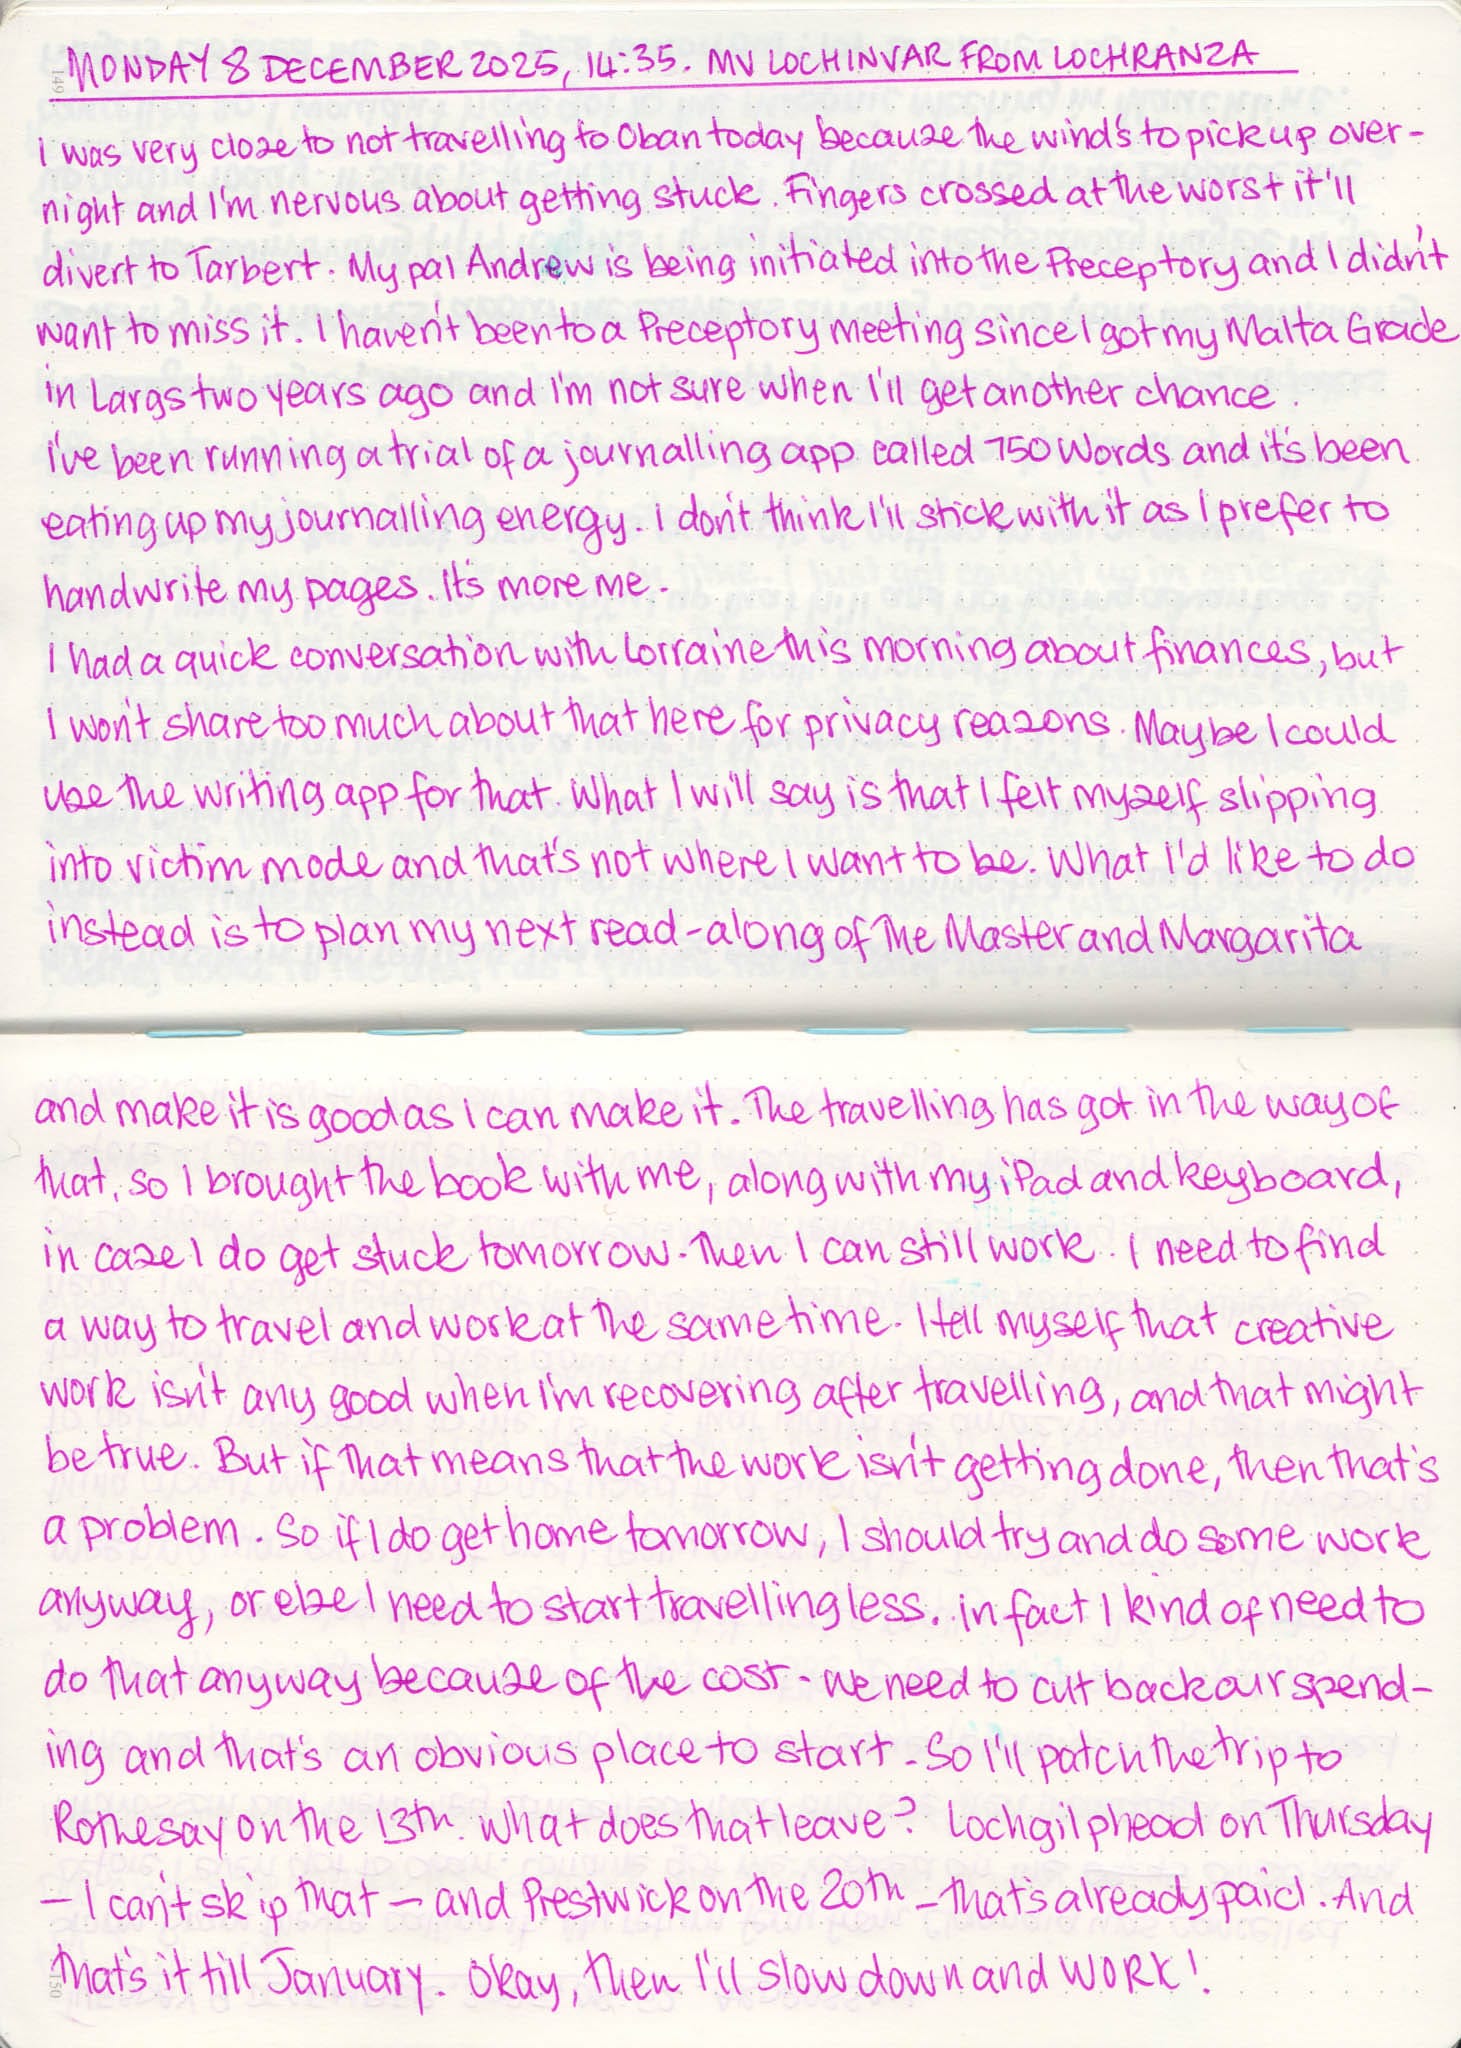 149
MONDAY 8 DECEMBER 2025, 14:35. MV LOCHINVAR FROM LOCHRANZA
I was very close to not travelling to Oban today because the wind's to pick up over-
night and I'm nervous about getting stuck. Fingers crossed at the worst it'll
divert to Tarbert. My pal Andrew is being initiated into the Preceptory and I didn't
want to miss it. I haven't been to a Preceptory meeting since I got my Malta Grade
in Largs two years ago and I'm not sure when I'll get another chance.
I've been running a trial of a journalling app called 750 Words and it's been
eating up my journalling energy. I don't think I'll stick with it as I prefer to
handwrite my pages. It's more me.
I had a quick conversation with Lorraine this morning about finances, but
I won't share too much about that here for privacy reasons. Maybe I could
use the writing app for that. What I will say is that I felt myself slipping
into victim mode and that's not where I want to be. What I'd like to do
instead is to plan my next read-along of The Master and Margarita
and make it is good as I can make it. The travelling has got in the way of
that, so I brought the book with me, along with my iPad and keyboard,
in case I do get stuck tomorrow. Then I can still work. I need to find
a way to travel and work at the same time. I tell myself that creative
work isn't any good when I'm recovering after travelling, and that might
be true. But if that means that the work isn't getting done, then that's
a problem. So if I do get home tomorrow, I should try and do some work
anyway, or else I need to start travelling less. In fact I kind of need to
do that anyway because of the cost - we need to cut back our spend-
ing and that's an obvious place to start. So I'll patch the trip to
Rothesay on the 13th. What does that leave? Lochgilphead on Thursday
— I can't skip that — and Prestwick on the 20th — that's already paid. And
that's it till January. Okay, then I'll slow down and WORK!
150